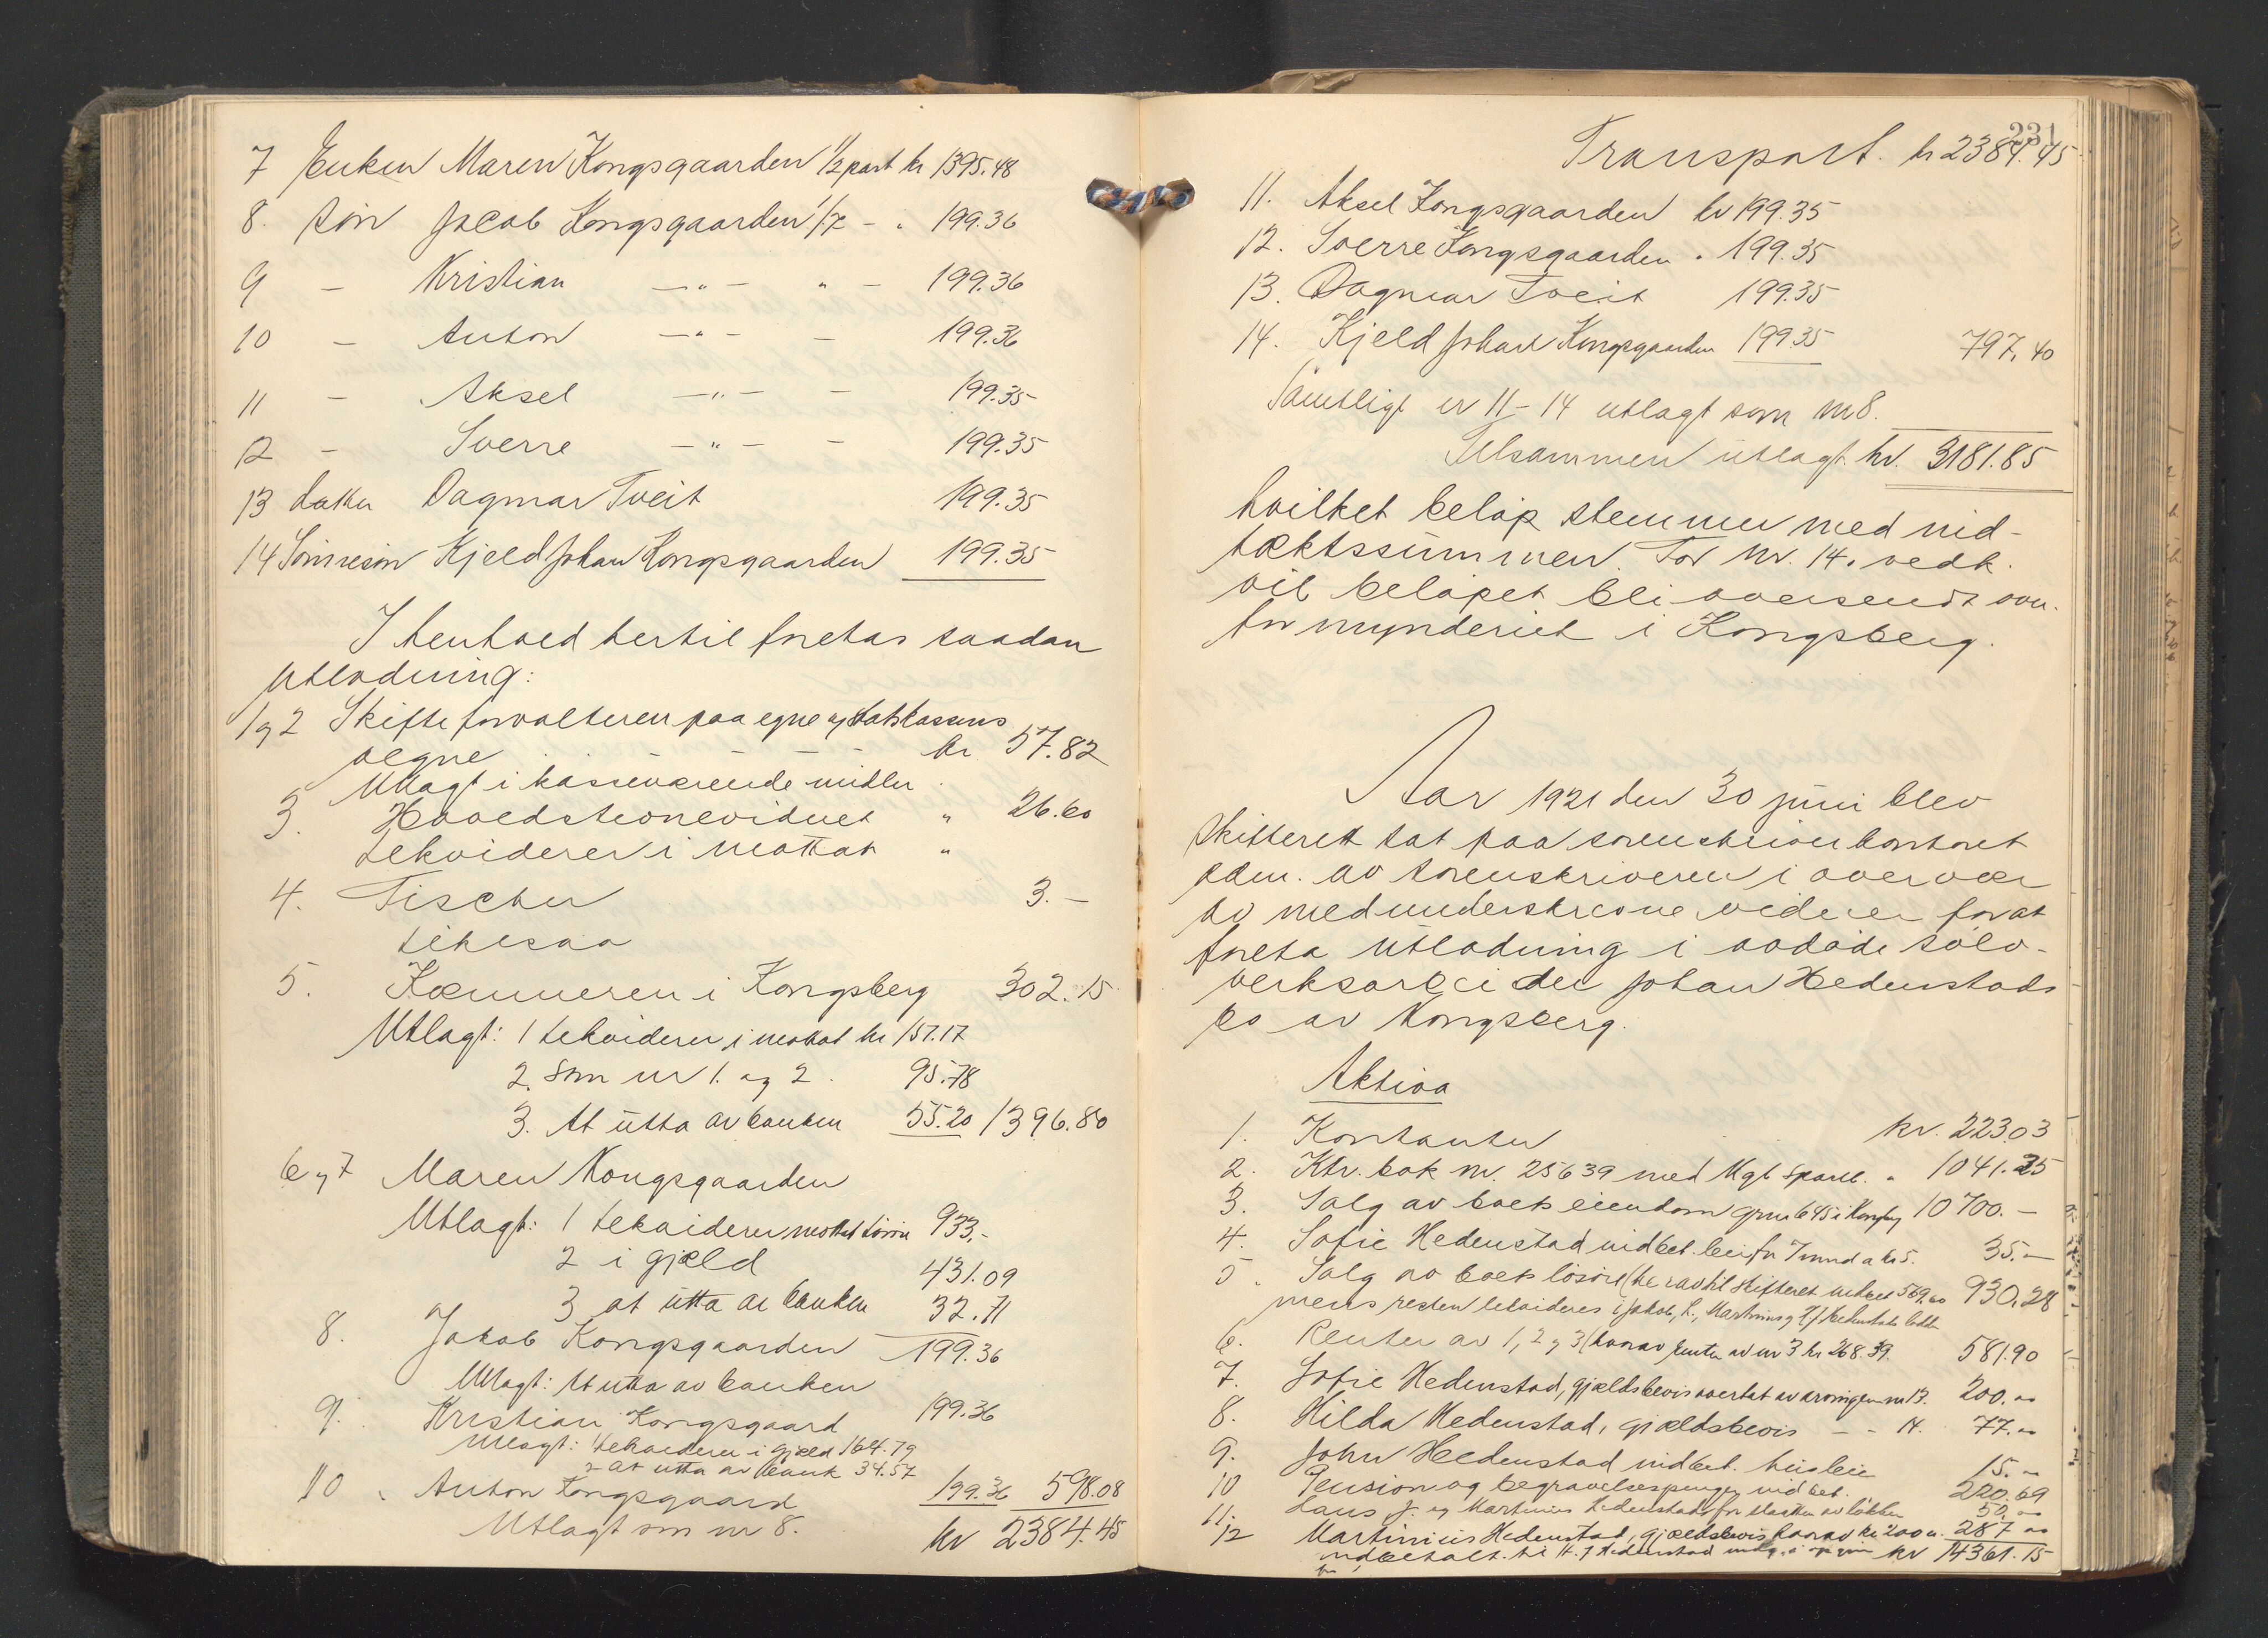 7 Enken Maren Kongsgaarden 1/2 part kr 1395.48
8. Søn Jacob Kongsgaarden 1/7 - " 199.36
9 - Kristian -"- " - 199.36
10 - Anton -"- - 199.36
11 - Aksel -"- - 199.35
12 - Sverre -"- - 199.35
13 datter Dagmar Tveit 199.35
14 Sønnesøn Kjeld Johan Kongsgaarden 199.35
I henhold hertil foretas saadan
utlodning:
1 og 2 Skifteforvalteren paa egne og statskassens
vegne - - - - kr 57.82
Utlagt i kasseværende midler.
3. Hovedstionevidnet " 26.60
Lekviderer i mottat "
4. Fischer 3.-
likesaa
5. Kæmneren i Kongsberg 302.15
Utlagt: 1 Lekviderer i mottat kr 151.17
2. Som nr 1. og 2. 95.78
3. At utta av banken 55.20 / 396.80
6 og 7 Maren Kongsgaarden
Utlagt: 1 Lekviderer mottat 933.-
2 i gjæld 431.09
3 at utta av banken 32.71
8. Jakob Kongsgaarden 199.36
Utlagt: At utta av banken
9. Kristian Kongsgaard 199.36
Utlagt: 1 Lekviderer i gjæld 164.79
2 at utta av bank 34.57
10. Anton Kongsgaard 199.36 598.08
Utlagt som nr 8. kr 2384.45
231
Transport. kr 2384.45
11. Aksel Kongsgaarden kr 199.35
12. Sverre Kongsgaarden " 199.35
13. Dagmar Tveit 199.35
14. Kjeld Johan Kongsgaarden 199.35 797.40
Samtlige nr 11-14 utlagt som nr 8.
Tilsammen utlagt kr. 3181.85
hvilket beløp stemmer med ind-
tæktssummen. For Nr. 14. vedk.
vil beløpet bli oversendt over-
formynderiet i Kongsberg.
Aar 1921 den 30 juni blev
skifterett sat paa sorenskriverkontoret
adm. av sorenskriveren i overvær
av medunderskrevne vidner for at
foreta utlodning i avdøde sølv-
verksarbeider Johan Hedenstads
bo av Kongsberg.
Aktiva
1. Kontanter kr. 223.03
2. Ktr. bok nr. 25639 med Kgb Spareb. " 1041.25
3. Salg av boets eiendom grnr 645 i Kongsbg 10700.-
4. Sofie Hedenstad indbet. leie for 7 mnd a kr 5. 35.-
5. Salg av boets løsøre (herav til skifteret indbet 569.60 930.28
mens resten lekvideres i Jakob, H., Martinius og H J Hedenstads lodder
6. Renter av 1, 2 og 3 (hvorav renter av nr 3 kr 268.39. 581.90
7. Sofie Hedenstad, gjældsbevis overtat av arvingen nr 13. 200.-
8. Hilda Hedenstad, gjældsbevis - - 14. 77.-
9. John Hedenstad indbet. husleie 15.-
10 Pension og begravelsespenger indbet. 220.69
11. Hans J. og Martinius Hedenstad for slaatten av løkken 50.-
12 Martinius Hedenstad, gjældsbevis hvorav kr 200 er 287.-
indbetalt. kr 14361.15